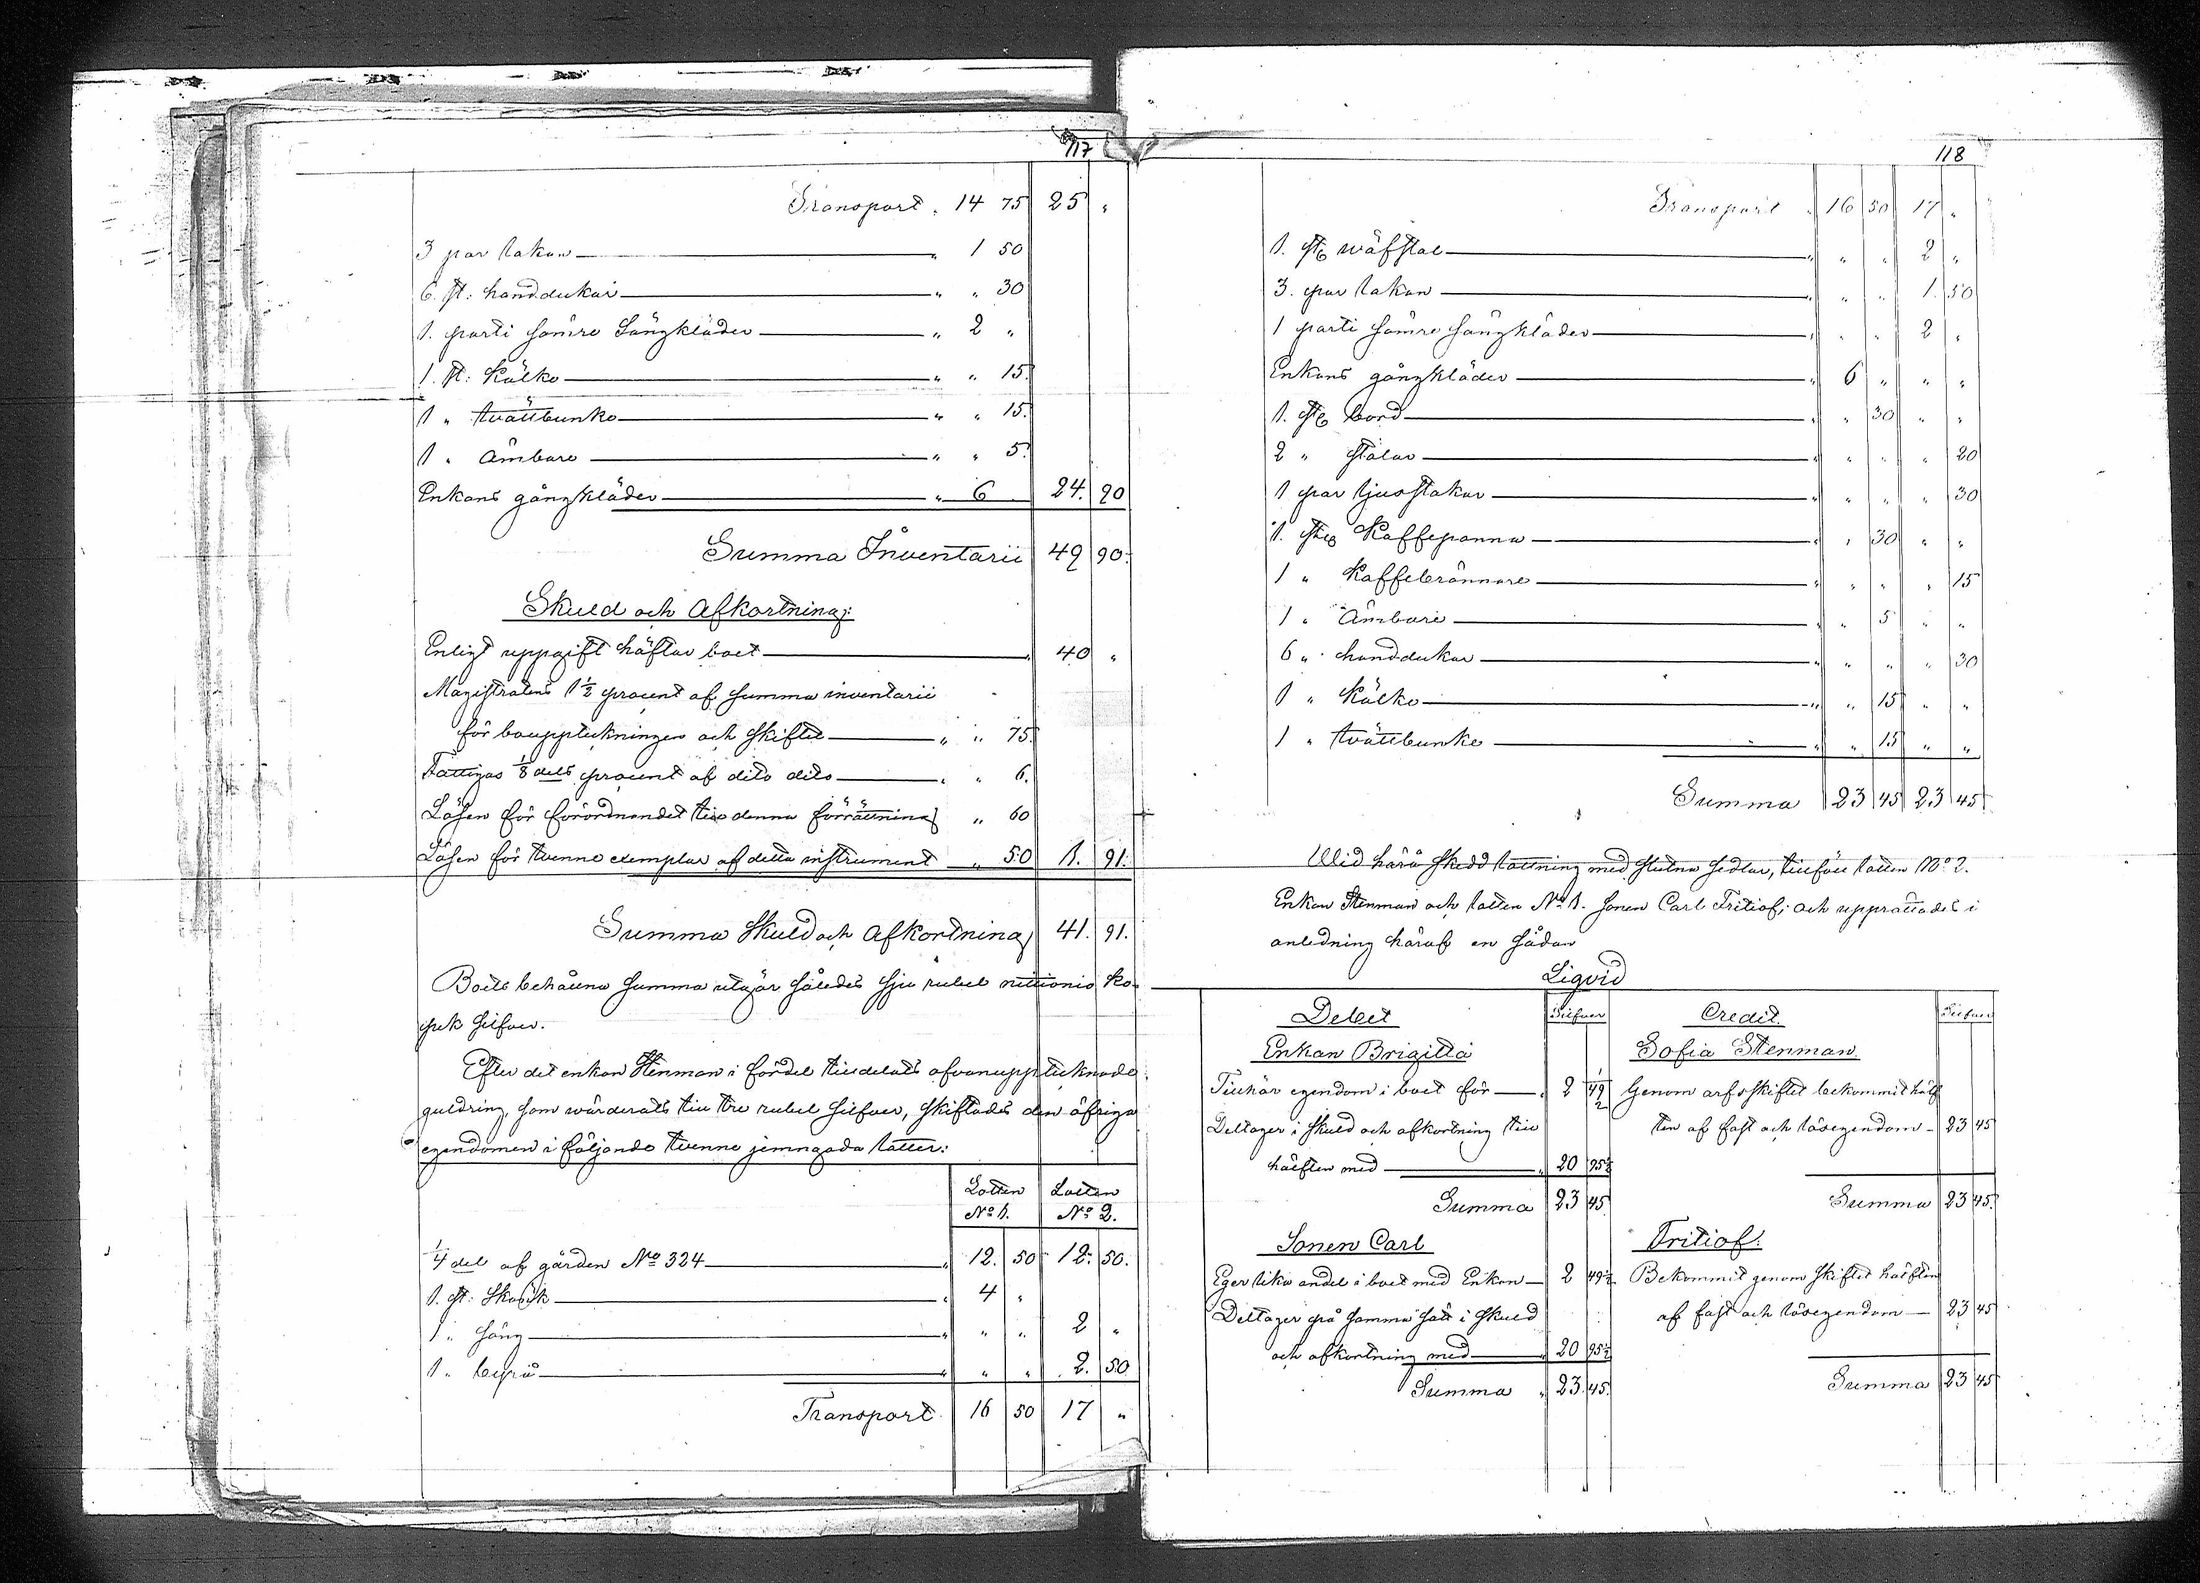 117
Transport " 14 75 25 "
3 par lakan " 1 50
6 st: handdukar " " 30
1. parti sämre sängkläder " 2 "
1. st: kälke " " 15.
1 " tvättbunke " " 15.
1 " ämbare " " 5.
Enkans gångkläder " 6 24. 90
Summa Inventarii 49 90.
Skuld och Afkortning:
Enligt uppgift häftar boet " 40 "
Magistratens 1 1/2 procent af summa inventarii
för bouppteckningen och skiftet " " 75.
Fattigas 1/8 dels procent af dito dito " " 6.
Lösen för förordnandet till denna förrättning " 60
Lösen för tvenne exemplar af detta instrument " 50 1. 91.
Summa skuld och afkortning 41. 91.
Boets behållna summa utgör således sju rubel nittionio ko-
pek silfver.
Efter det enkan Stenman i fördel tilldelats ofvanupptecknade
guldring, som värderats till tre rubel silfver, skiftades den öfriga
egendomen i följande tvenne jemngoda lotter:
Lotten Lotten
No 1. No 2.
1/4 del af gården No 324 " 12. 50 12. 50.
1. st: " 4 "
1 " säng " " " 2 "
1 " " " " 2. 50
Transport 16 50 17 "
118
Transport " 16 50 17 "
1. st. wäfstol " " " 2 "
3. par lakan " " " 1. 50
1 parti sämre sängkläder " " " 2 "
Enkans gångkläder " 6 " " "
1. st. bord " " 30 " "
2 " stolar " " " " 20
1 par ljusstakar " " " " 30
1. st. Kaffepanna " " 30 " "
1 " Kaffebrännare " " " " 15
1 " Ämbare " " 5 " "
6 " handdukar " " " " 30
1 " Kälke " " 15 " "
1 " tvättbunke " " 15 " "
Summa 23 45 23 45
Wid härå skedd lottning med slutna sedlar, tillföll lotten No 2.
Enkan Stenman och lotten No 1. sonen Carl Fritiof; och upprättades i
anledning häraf en sådan
Liqvid
Debet Silfver Credit. Silfver
Enkan Brigitta Sofia Stenman.
Tillhör egendom i boet för " 2 49 1/2 Genom arfskiftet bekommit hälf
Deltager i skuld och afkortning till ten af fast och lösegendom 23 45
hälften med " 20 95 1/2
Summa 23 45 Summa 23 45.
Sonen Carl Fritiof.
Eger lika andel i boet med Enkan 2 49 1/2 Bekommit genom skiftet hälften
Deltager på samma sätt i skuld af fast och lösegendom 23 45
och afkortning med 20 95 1/2
Summa " 23. 45. Summa 23 45